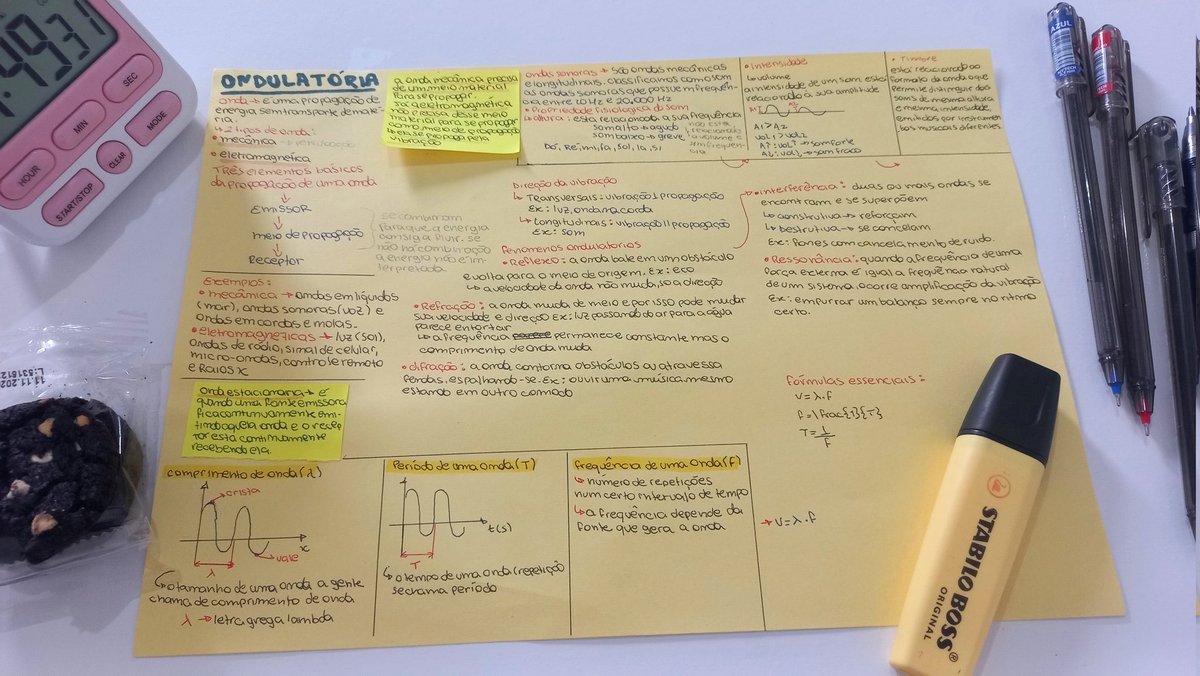 ONDULATÓRIA
onda → é uma propagação de
energia sem transporte de maté-
ria.
↳ 2 tipos de onda:
• mecânica →
• eletromagnetica
Três elementos básicos
da propagação de uma onda
Emissor
meio de propagação
Receptor
se combinam
para que a energia
consiga fluir. se
não há combinação
a energia não é in-
terpretada
Exemplos:
• mecânica → ondas em líquidos
(mar), ondas sonoras (voz) e
ondas em cordas e molas.
• eletromagnéticas → luz (sol),
ondas de rádio, sinal de celular,
micro-ondas, controle remoto
e Raios x
a onda mecânica precisa
de um meio material
para se propagar
Já a eletromagnética
não precisa desse meio
material para se propagar
vibração
ondas sonoras → são ondas mecânicas
e longitudinais, classificamos como som
as ondas sonoras que possuem frequên-
cia entre 20 Hz e 20.000 Hz
• Propriedade fisiologica do som
↳ altura: esta relacionado a sua frequência
som alto → agudo
som baixo → greve
não está
relacionado
a volume e
sim frequen-
cia
Dó, Re, mi, fa, sol, la, si
• Intensidade
↳ volume
a intensidade de um som está
relacionado à sua amplitude
A1 > A2
vol1 > vol2
A↑: vol↑ → som forte
A↓: vol↓ → som fraco
• Timbre
está relacionado ao
formato da onda que
permite distinguir dois
sons de mesma altura
e mesma intensidade,
emitidos por instrumen
tos musicais diferentes
Direção da vibração
↳ Transversais: vibração ⊥ propagação
Ex: luz, onda na corda
↳ longitudinais: vibração || propagação
Ex: som
Fenomenos ondulatorios
• Reflexão: a onda bate em um obstáculo
e volta para o meio de origem. Ex: eco
↳ a velocidade da onda não muda, so a direção
• Refração: a onda muda de meio e por isso pode mudar
sua velocidade e direção Ex: luz passando do ar para a água
parece entortar
↳ a frequência permanece constante mas o
comprimento de onda muda
• difração: a onda contorna obstáculos ou atravessa
fendas, espalhando-se. Ex: ouvir uma música mesmo
estando em outro comodo
• interferência: duas ou mais ondas se
encontram e se superpõem
↳ construtiva → reforçam
↳ destrutiva → se cancelam
Ex: fones com cancelamento de ruido.
• Ressonância: quando a frequência de uma
força externa é igual a frequência natural
de um sistema, ocorre amplificação da vibração
Ex: empurrar um balanço sempre no ritmo
certo.
Fórmulas essenciais:
v=λ.f
f=\frac{1}{T}
T=1/f
→ v=λ.f
Onda estacionaria → é
quando uma fonte emissora
fica continuamente emi-
tindo aquela onda e o recep
tor esta continuamente
recebendo ela.
comprimento de onda (λ)
crista
x
vale
λ
↳ o tamanho de uma onda a gente
chama de comprimento de onda
λ → letra grega lambda
Período de uma onda (T)
t(s)
T
↳ o tempo de uma onda/repetição
se chama período
frequência de uma onda (F)
↳ numero de repetições
num certo intervalo de tempo
↳ a frequência depende da
fonte que gera a onda
HOUR
MIN
SEC
START/STOP
CLEAR
MODE
11.11.202
AZUL
STABILO BOSS
ORIGINAL